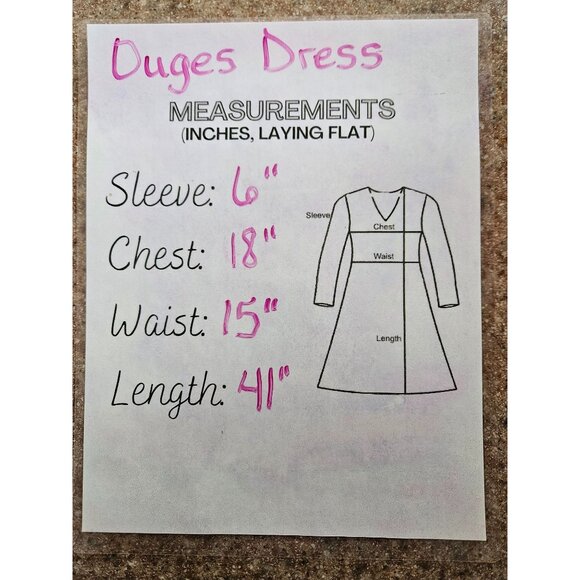 Duges Dress
MEASUREMENTS
(INCHES, LAYING FLAT)
Sleeve: 6"
Chest: 18"
Waist: 15"
Length: 41"
Sleeve
Chest
Waist
Length